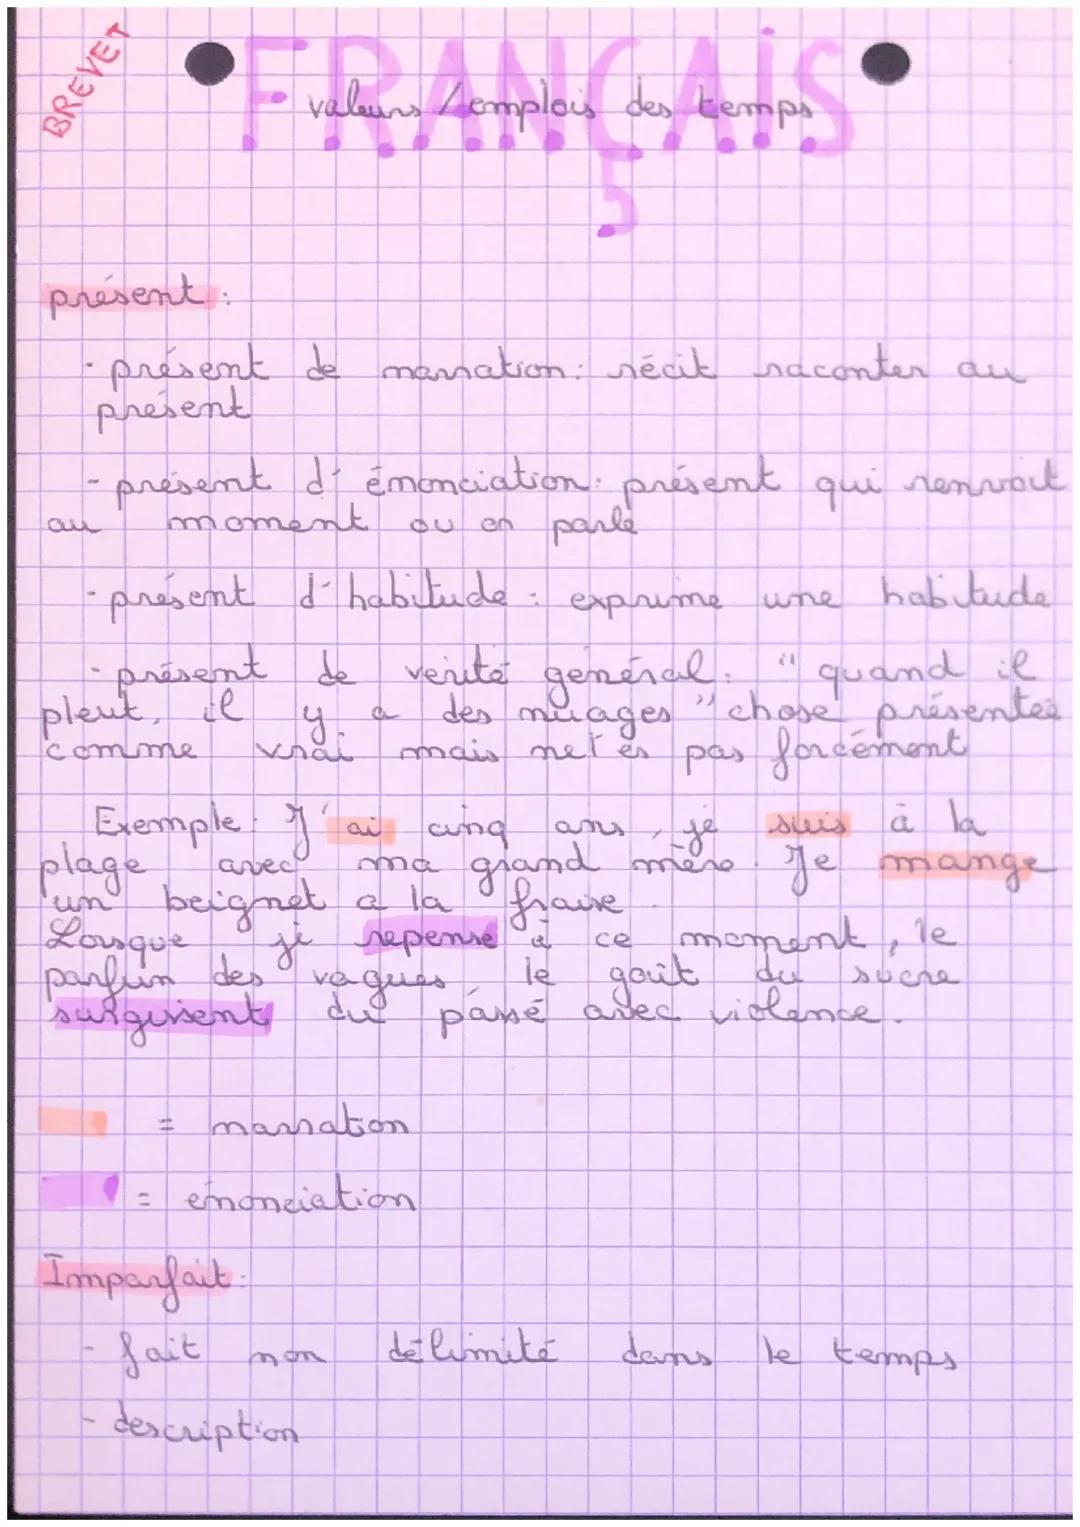 BREVET
FRANÇAIS
valeurs / emplois des temps
présent :
- présent de narration : récit raconter au
présent
- présent d'énonciation : présent qui renvoit
au moment ou on parle
- présent d'habitude : exprime une habitude
- présent de vérité général : "quand il
pleut, il y a des nuages" chose présentée
comme vrai mais net es pas forcément
Exemple : J'ai cinq ans, je suis à la
plage avec ma grand mère. Je mange
un beignet a la fraise.
Lorsque je repense à ce moment, le
parfum des vagues, le goût du sucre
surgissent du passé avec violence.
= narration
= énonciation
Imparfait :
- fait non délimité dans le temps
- description